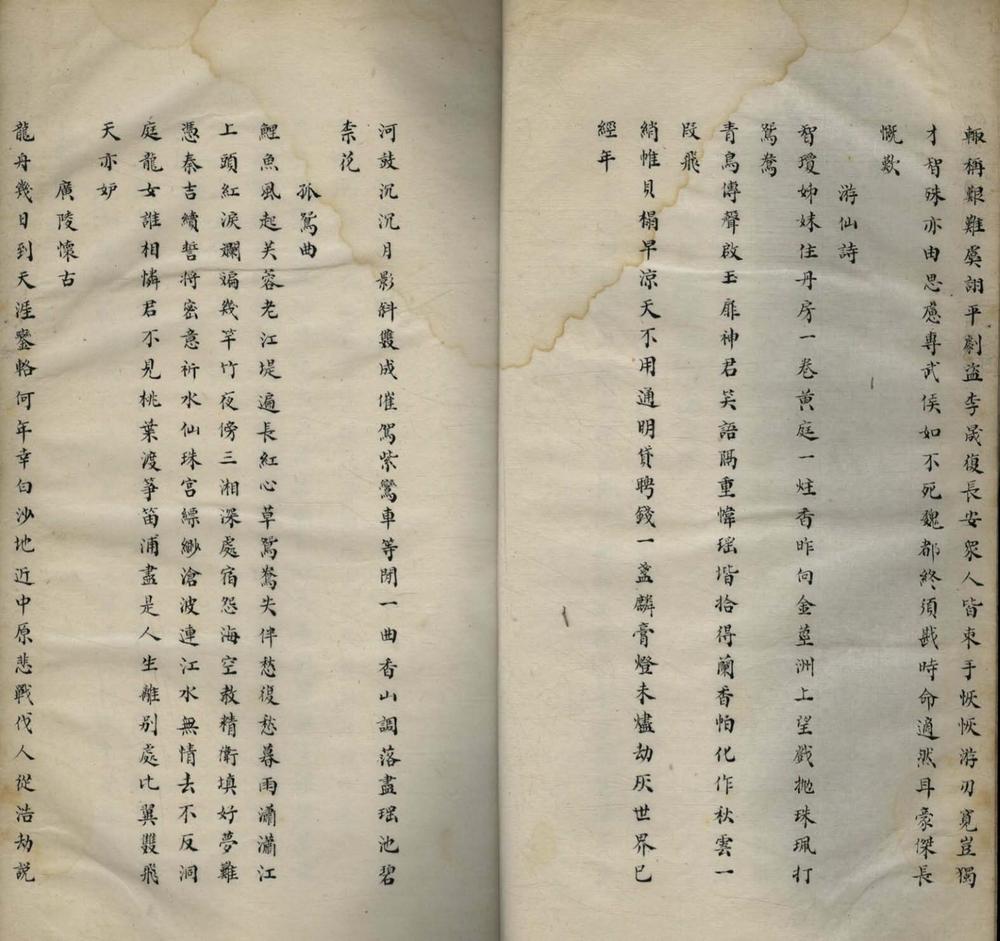 輙稱艱難虞詡平劇盜李晟復長安衆人皆束手恢恢游刃寬豈獨
才智殊亦由思慮專武侯如不死魏都終須戡時命適然耳豪傑長
慨歎
游仙詩
智瓊姊妹住丹房一卷黃庭一炷香昨向金莖洲上望戲拋珠珮打
鴛鴦
青鳥傳聲啟玉扉神君笑語隔重幃瑶堦拾得蘭香帕化作秋雲一
段飛
綃帷貝榻早凉天不用通明貸聘錢一盞麟膏燈未燼劫灰世界已
經年
河鼓沉沉月影斜雙成催駕紫鸞車等閒一曲香山調落盡瑶池碧
柰花
孤鴛曲
鯉魚風起芙蓉老江堤遍長紅心草鴛鴦失伴愁復愁暮雨瀟瀟江
上頭紅淚斕斒幾竿竹夜傍三湘深處宿怨海空教精衛填好夢難
憑秦吉續誓將密意祈水仙珠宮縹緲滄波連江水無情去不反洞
庭龍女誰相憐君不見桃葉渡箏笛浦盡是人生離别處比翼雙飛
天亦妒
廣陵懷古
龍舟幾日到天涯鑾輅何年幸白沙地近中原悲戰伐人從浩劫説